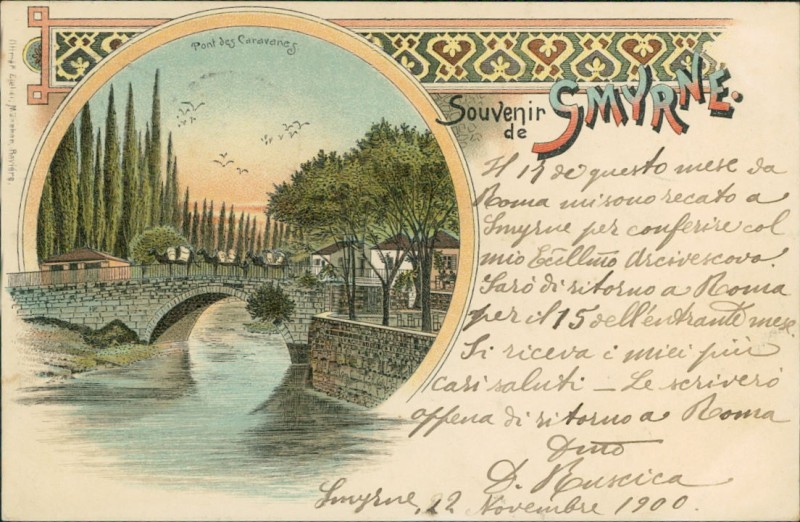 Pont des Caravanes
Souvenir
de
SMYRNE.
Il 15 de questo mese da
Roma mi sono recato a
Smyrne per conferire col
mio Ecc͠llmo Arcivescovo.
Sarò di ritorno a Roma
per il 15 dell'entrante mese.
Si riceva i miei più
cari saluti — Le scriverò
appena di ritorno a Roma
Dmo
D. Ruscica
Smyrne, 22 Novembre 1900.